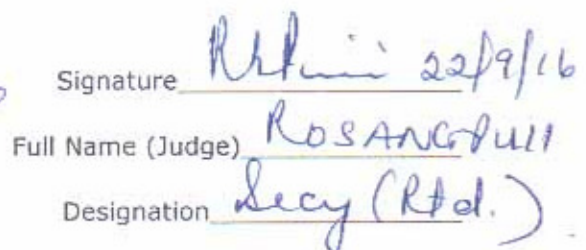 Signature 22/9/16
Full Name (Judge) ROSANGPUII
Designation Secy (Rtd.)